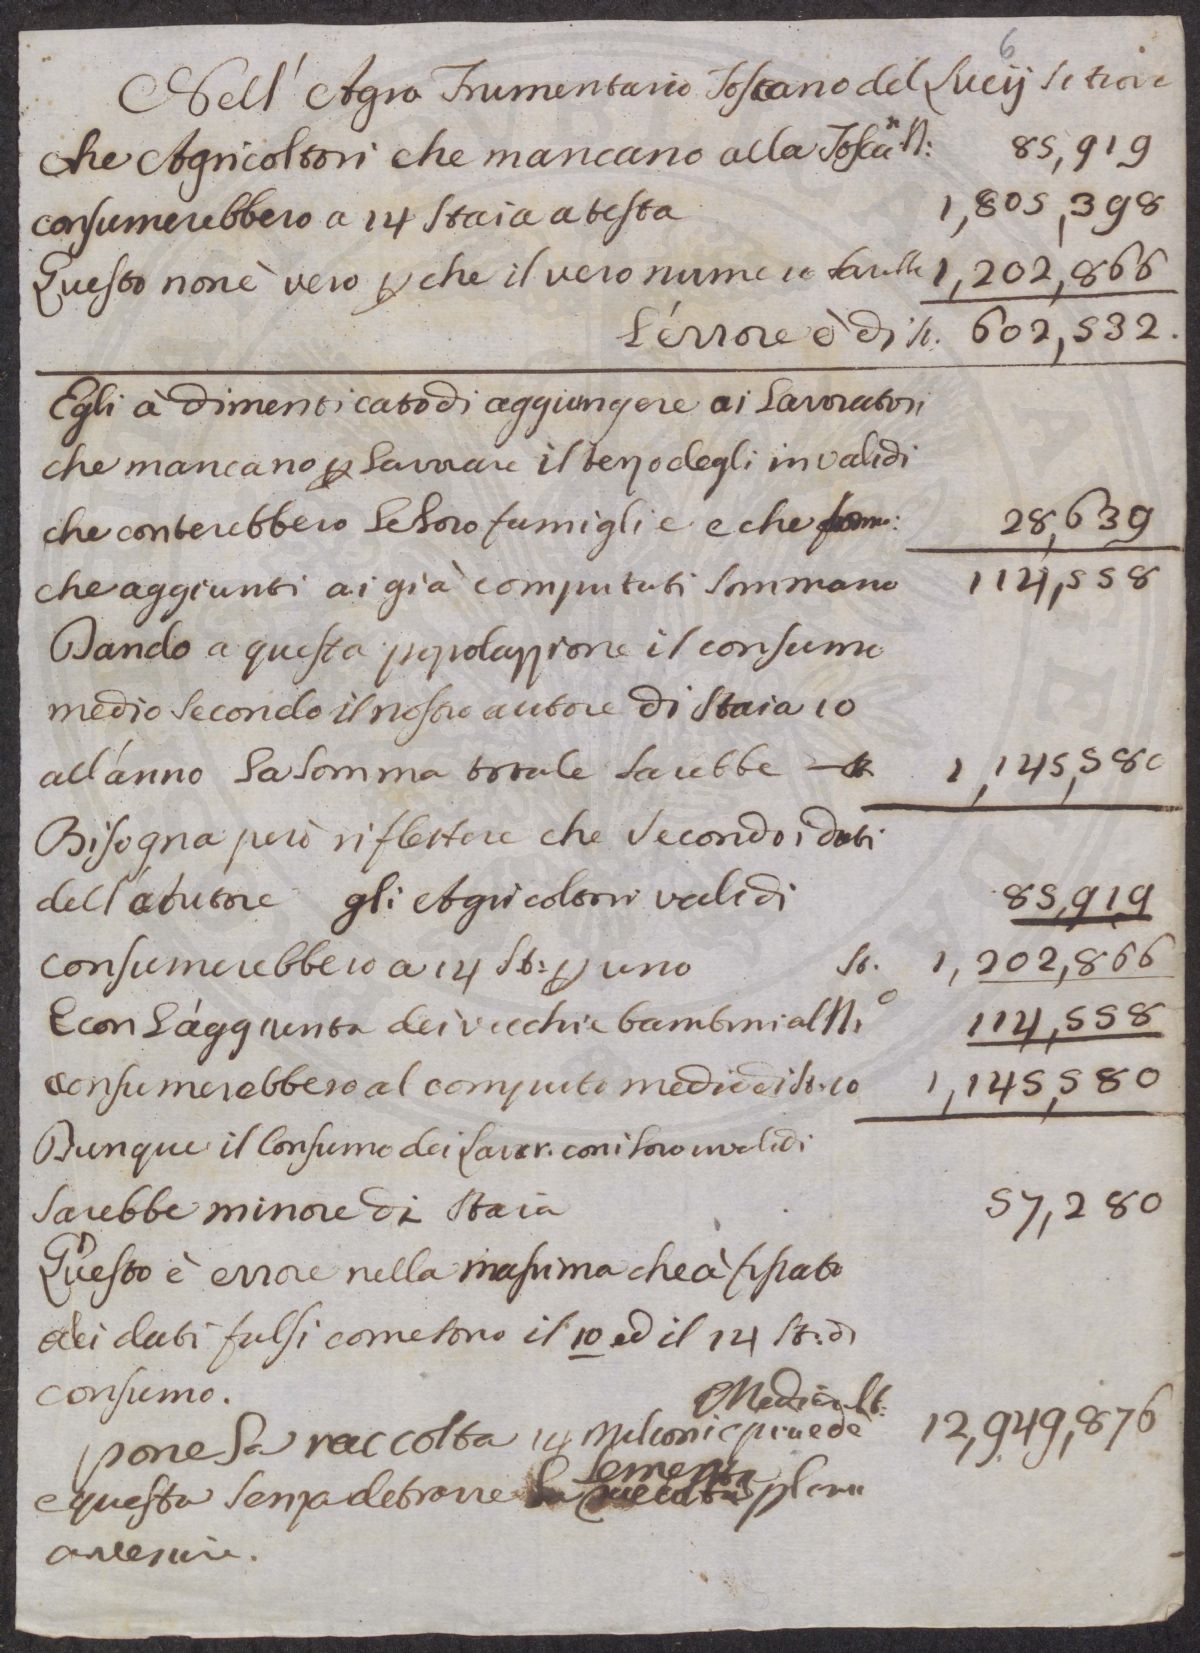 6
Nell' Agro Frumentario Toscano del Lucij si trova
che Agricoltori che mancano alla Toscaⁿ N: 85,919
consumerebbero a 14 Staia a testa 1,805,398
Questo non è vero p che il vero numero sarebbe 1,202,866
L'errore è di st. 602,532.
Egli à dimenticato di aggiungere ai Lavoratori
che mancano p Lavorare il terzo degli invalidi
che conterebbero Le Loro famiglie e che 28,639
che aggiunti ai già computati Sommano 114,558
Dando a questa popolazzione il consumo
medio Secondo il nostro autore di Staia 10
all'anno La Somma totale Sarebbe 1,145,580
Bisogna però riflettere che Secondo i dati
dell'autore gli Agricoltori validi 85,919
consumerebbero a 14 St: p uno St. 1,202,866
E con L'aggiunta dei vecchi e bambini al N.º 114,558
consumerebbero al computo medio di St: 10 1,145,580
Dunque il Consumo dei Lavor. con i Loro invalidi
Sarebbe minore di Staia 57,280
Questo è errore nella massima che à fissato
dei dati falsi come sono il 10 ed il 14 St: di
consumo.
Media St:
pone La raccolta 14 milioni e p 12,949,876
Sementa
e questa Senza detrarre La raccolta p l'anno
avvenire.